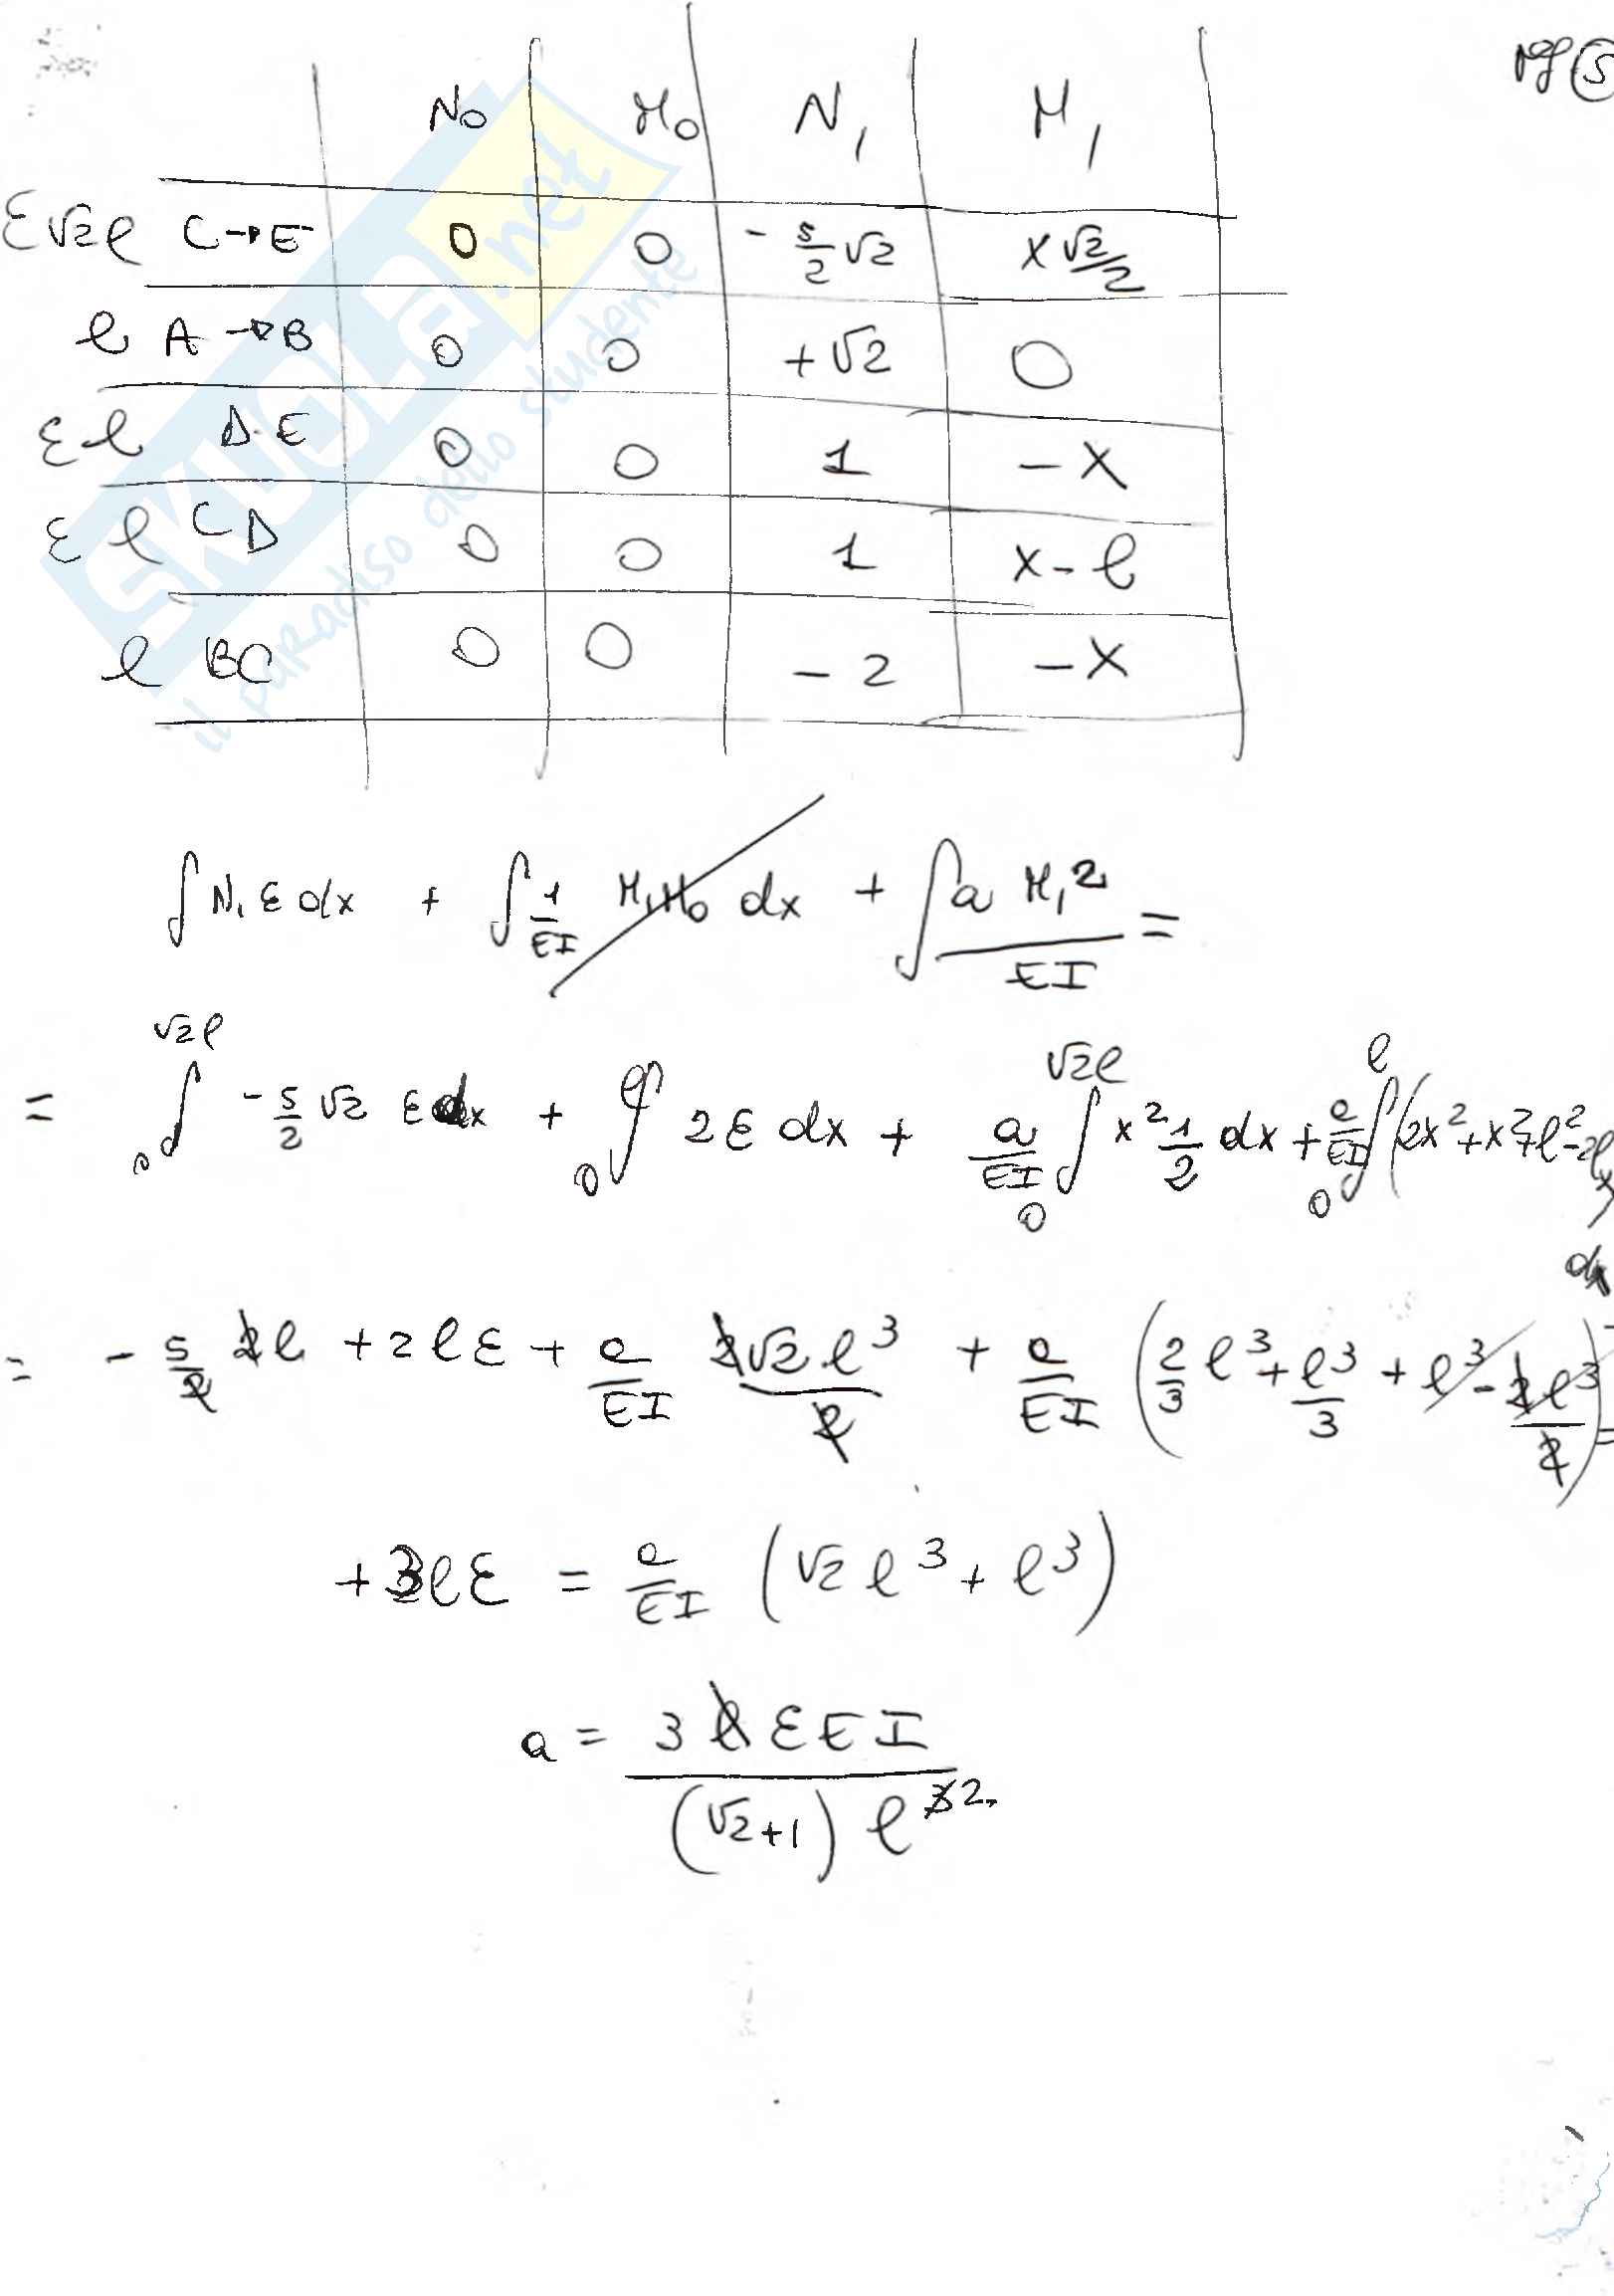 pg 5
N₀ M₀ N₁ M₁
ε√2ℓ C→E 0 0 -5/2 √2 x √2/2
ℓ A→B 0 0 +√2 0
εℓ D-E 0 0 1 -x
εℓ CD 0 0 1 x-ℓ
ℓ BC 0 0 -2 -x
SKUOLA.net
il paradiso dello studente
∫ N₁ ε dx + ∫ 1/EI M₁M₀ dx + ∫ a M₁²/EI =
= ∫₀^√2ℓ -5/2 √2 ε dx + ∫₀^ℓ 2ε dx + a/EI ∫₀^√2ℓ x² 1/2 dx + a/EI ∫₀^ℓ (2x² + x² + ℓ² - 2ℓx) dx
= -5/2 2ℓ + 2ℓε + a/EI 2√2ℓ³/2 + a/EI (2/3 ℓ³ + ℓ³/3 + ℓ³ - 2ℓ³/2) =
+3ℓε = a/EI (√2 ℓ³ + ℓ³)
a = 3ℓεEI / (√2+1) ℓ³ 2